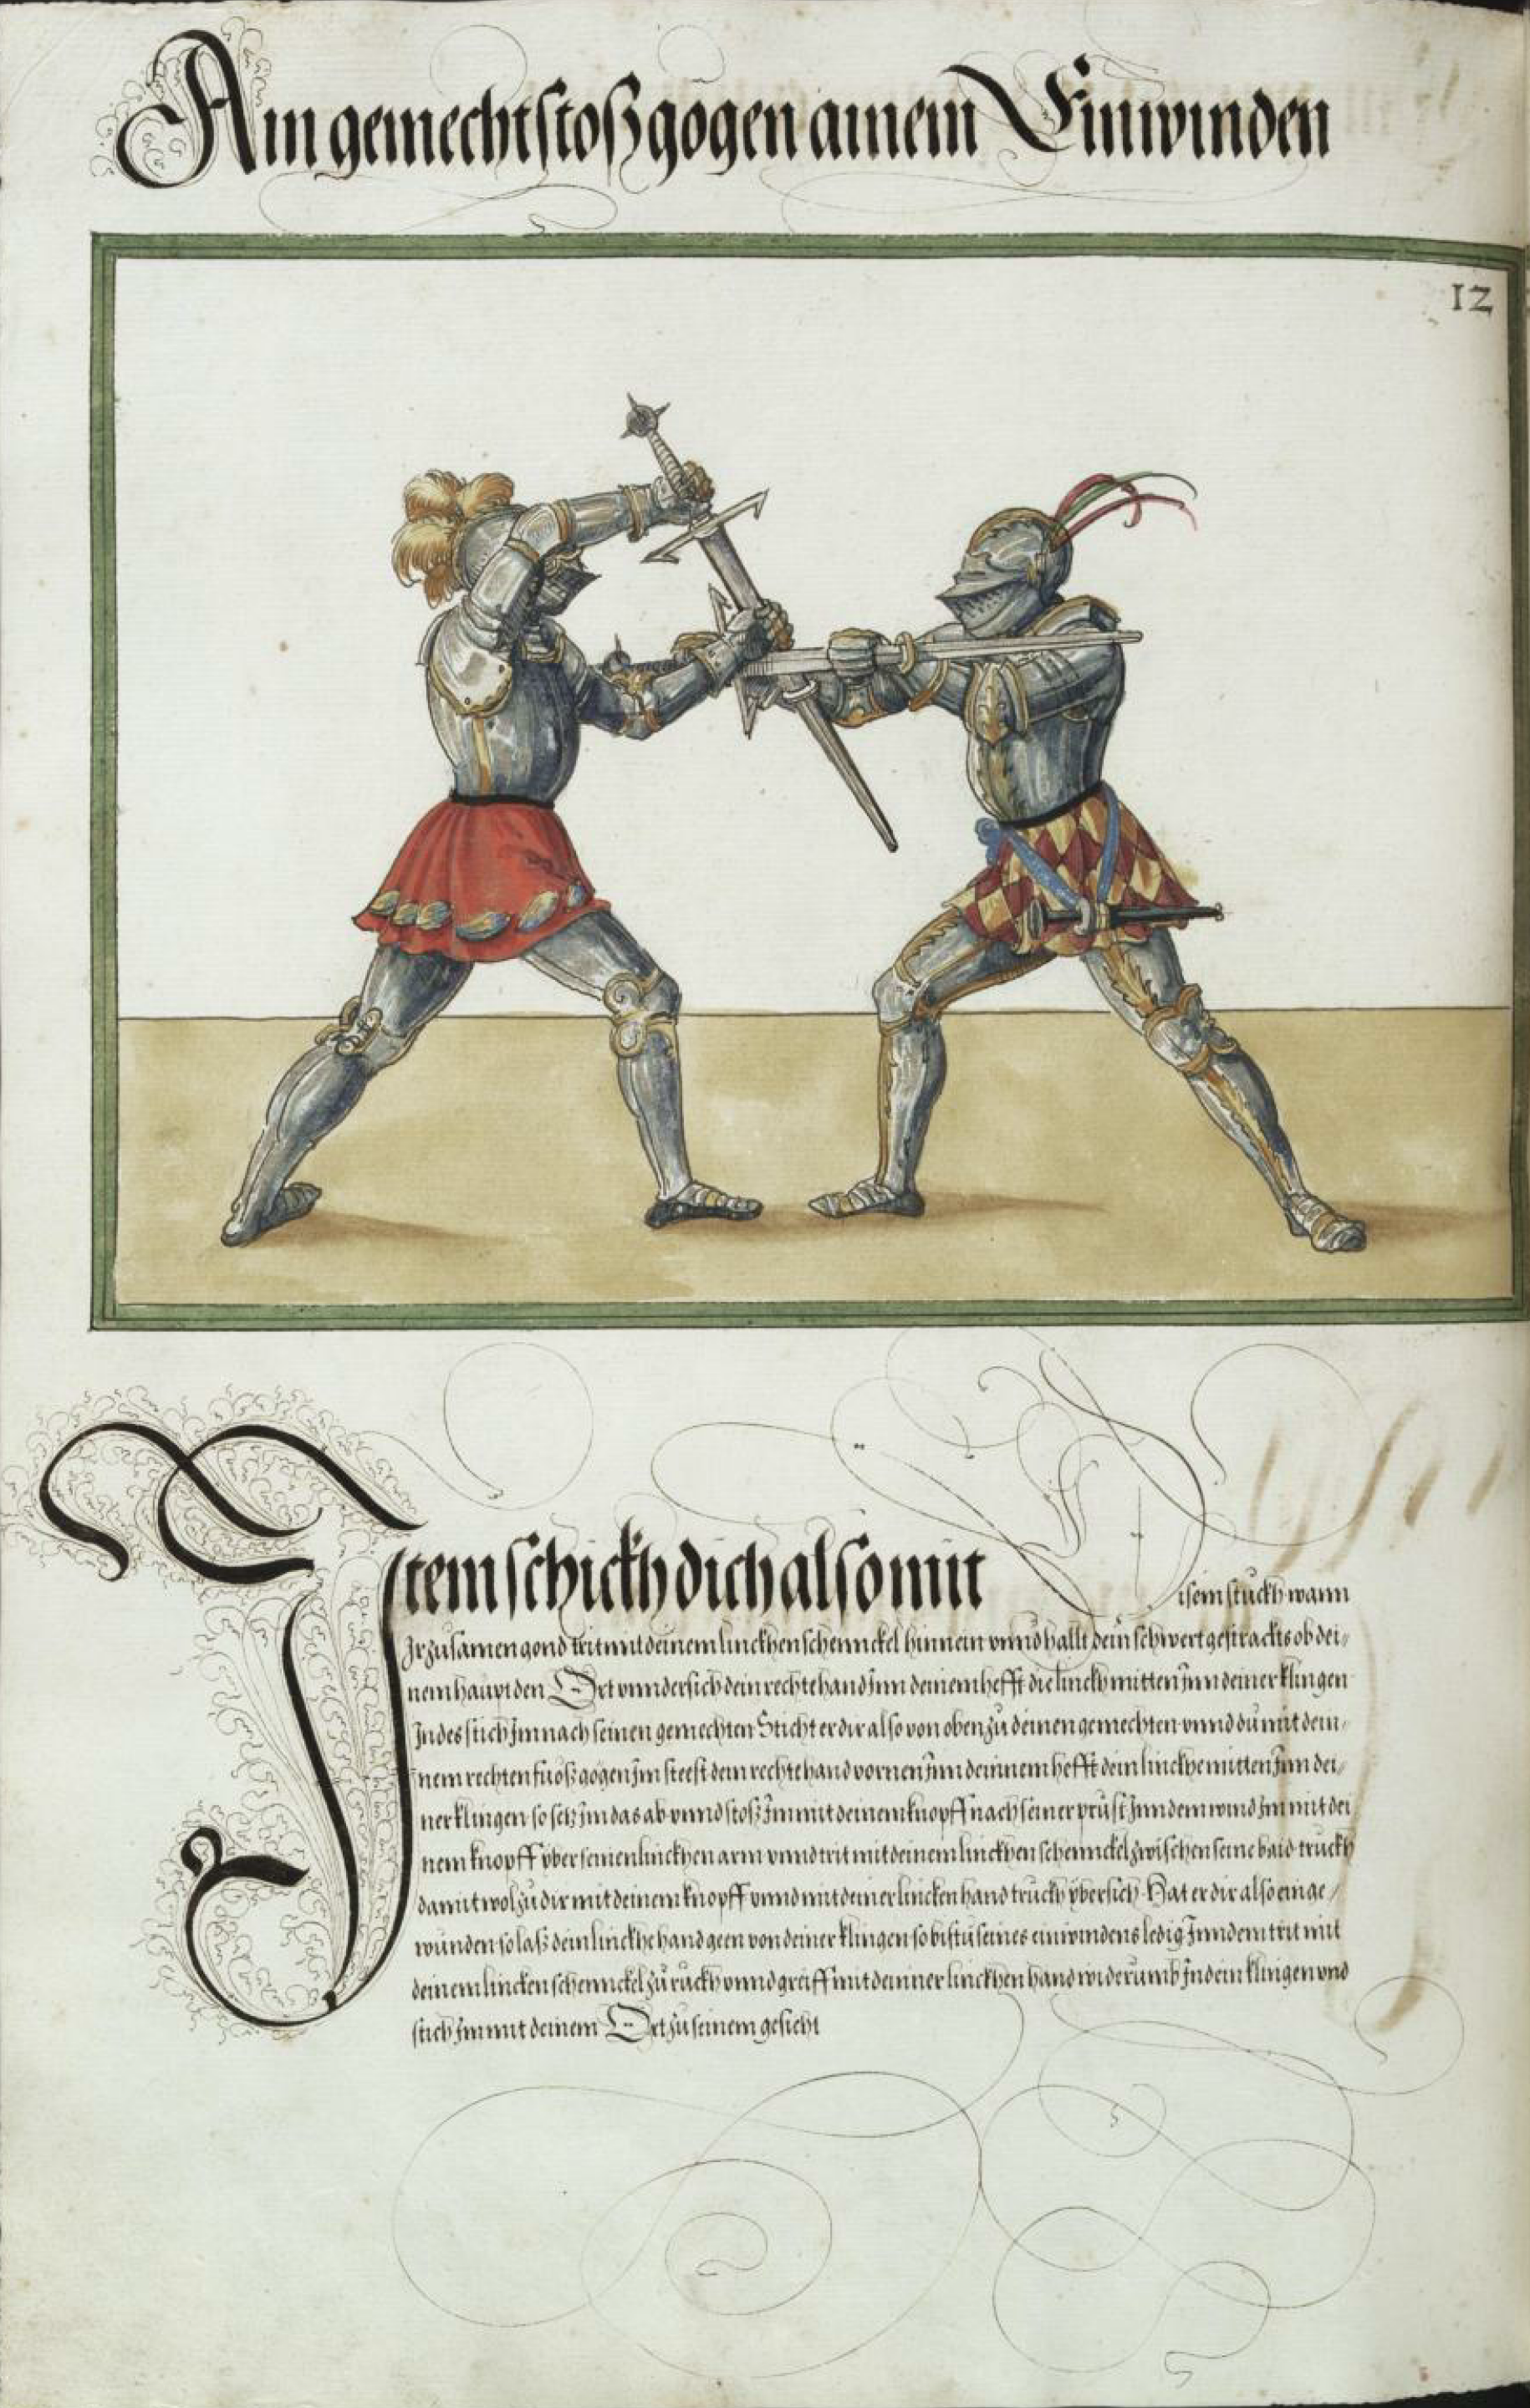 Ain gemechtstoß gögen ainem Einwinden
12
Item schickh dich also mit disem stuckh wann
Jr zusamen gond trit mit deinem linckhen schennckel hinnein vnnd hallt dein schwert gestrackts ob dei/
nem haupt den Ort vnndersich dein rechte hand Jnn deinem hefft die linckh mitten Jnn deiner klingen
Jndes stich Jm nach seinen gemechten Sticht er dir also von oben zu deinen gemechten vnnd du mit dein/
nem rechten fuoß gögen Jm steest dein rechte hand vornen Jnn deinnem hefft dein linckhe mitten Jnn dei/
ner klingen so setz Jm das ab vnnd stoß Jm mit deinem knopff nach seiner prust Jnn dem wind Jm mit dei
nem knopff vber seinen linckhen arm vnnd trit mit deinem linckhen schennckel zwischen seine baid truckh
damit wol zu dir mit deinem knopff vnnd mit deiner lincken hand truckh vbersich Hat er dir also einge/
wunden so laß dein linckhe hand geen von deiner klingen so bistu seines einwindens ledig Jnn dem trit mit
deinem lincken schennckel zu ruckh vnnd greiff mit deinner linckhen hand widerumb Jn dein klingen vnd
stich Jm mit deinem Ort zu seinem gesicht